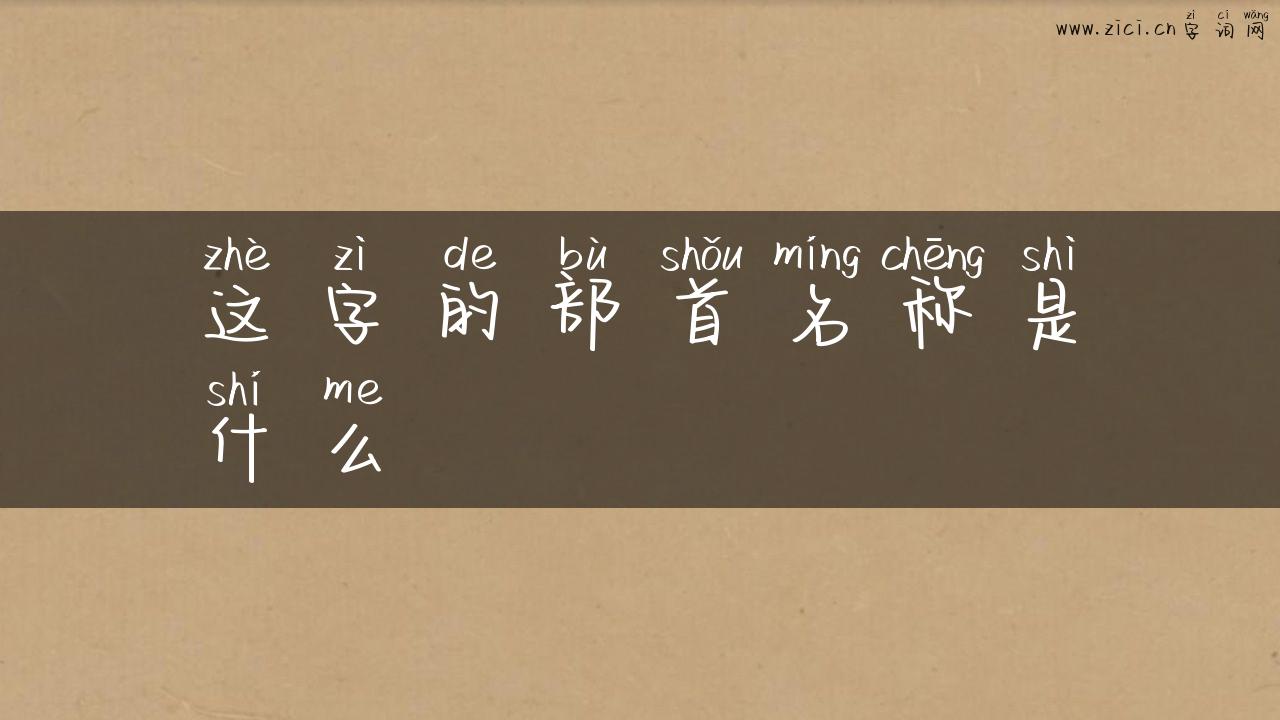 zì cí wǎng
www.zici.cn 字 词 网
zhè zì de bù shǒu míng chēng shì
这 字 的 部 首 名 称 是
shí me
什 么